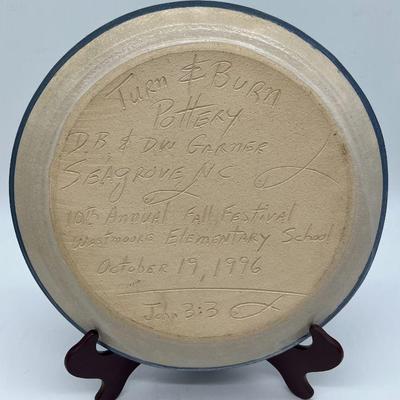 Turn & Burn
Pottery
D.B. & DW Garner
Seagrove, NC
10th Annual Fall Festival
Westmoore Elementary School
October 19, 1996
John 3:3